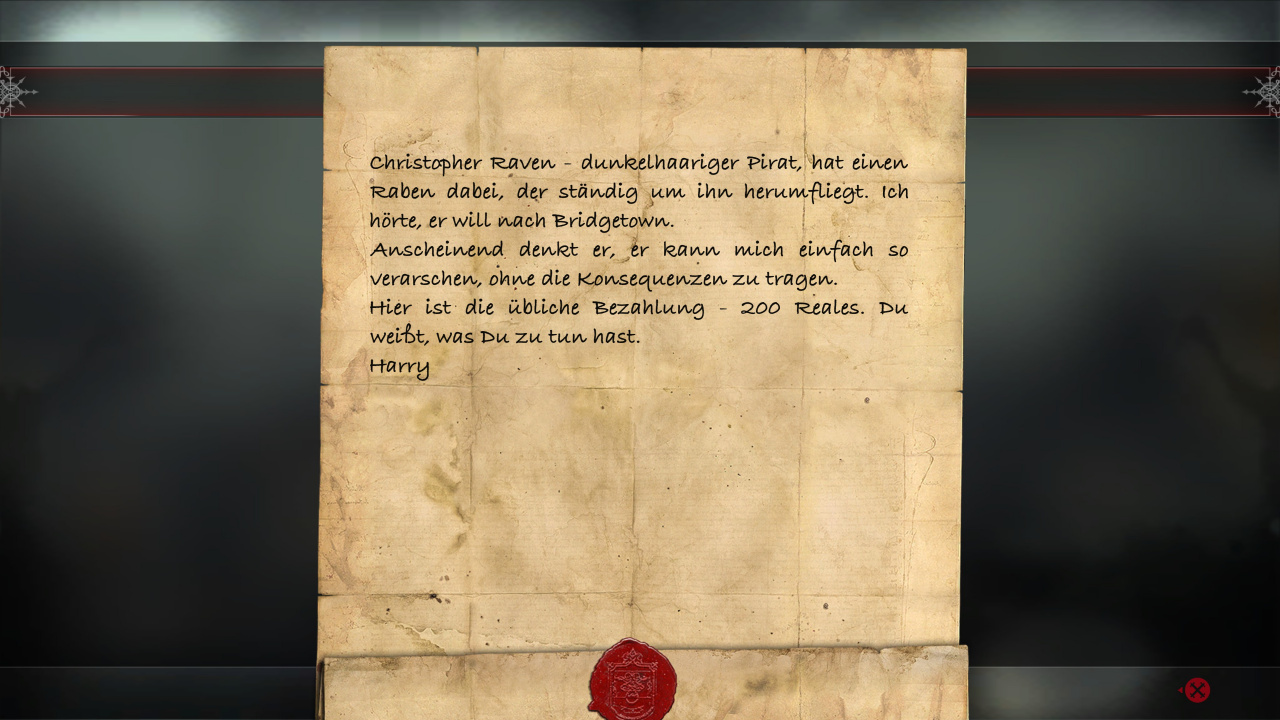 Christopher Raven - dunkelhaariger Pirat, hat einen
Raben dabei, der ständig um ihn herumfliegt. Ich
hörte, er will nach Bridgetown.
Anscheinend denkt er, er kann mich einfach so
verarschen, ohne die Konsequenzen zu tragen.
Hier ist die übliche Bezahlung - 200 Reales. Du
weißt, was Du zu tun hast.
Harry